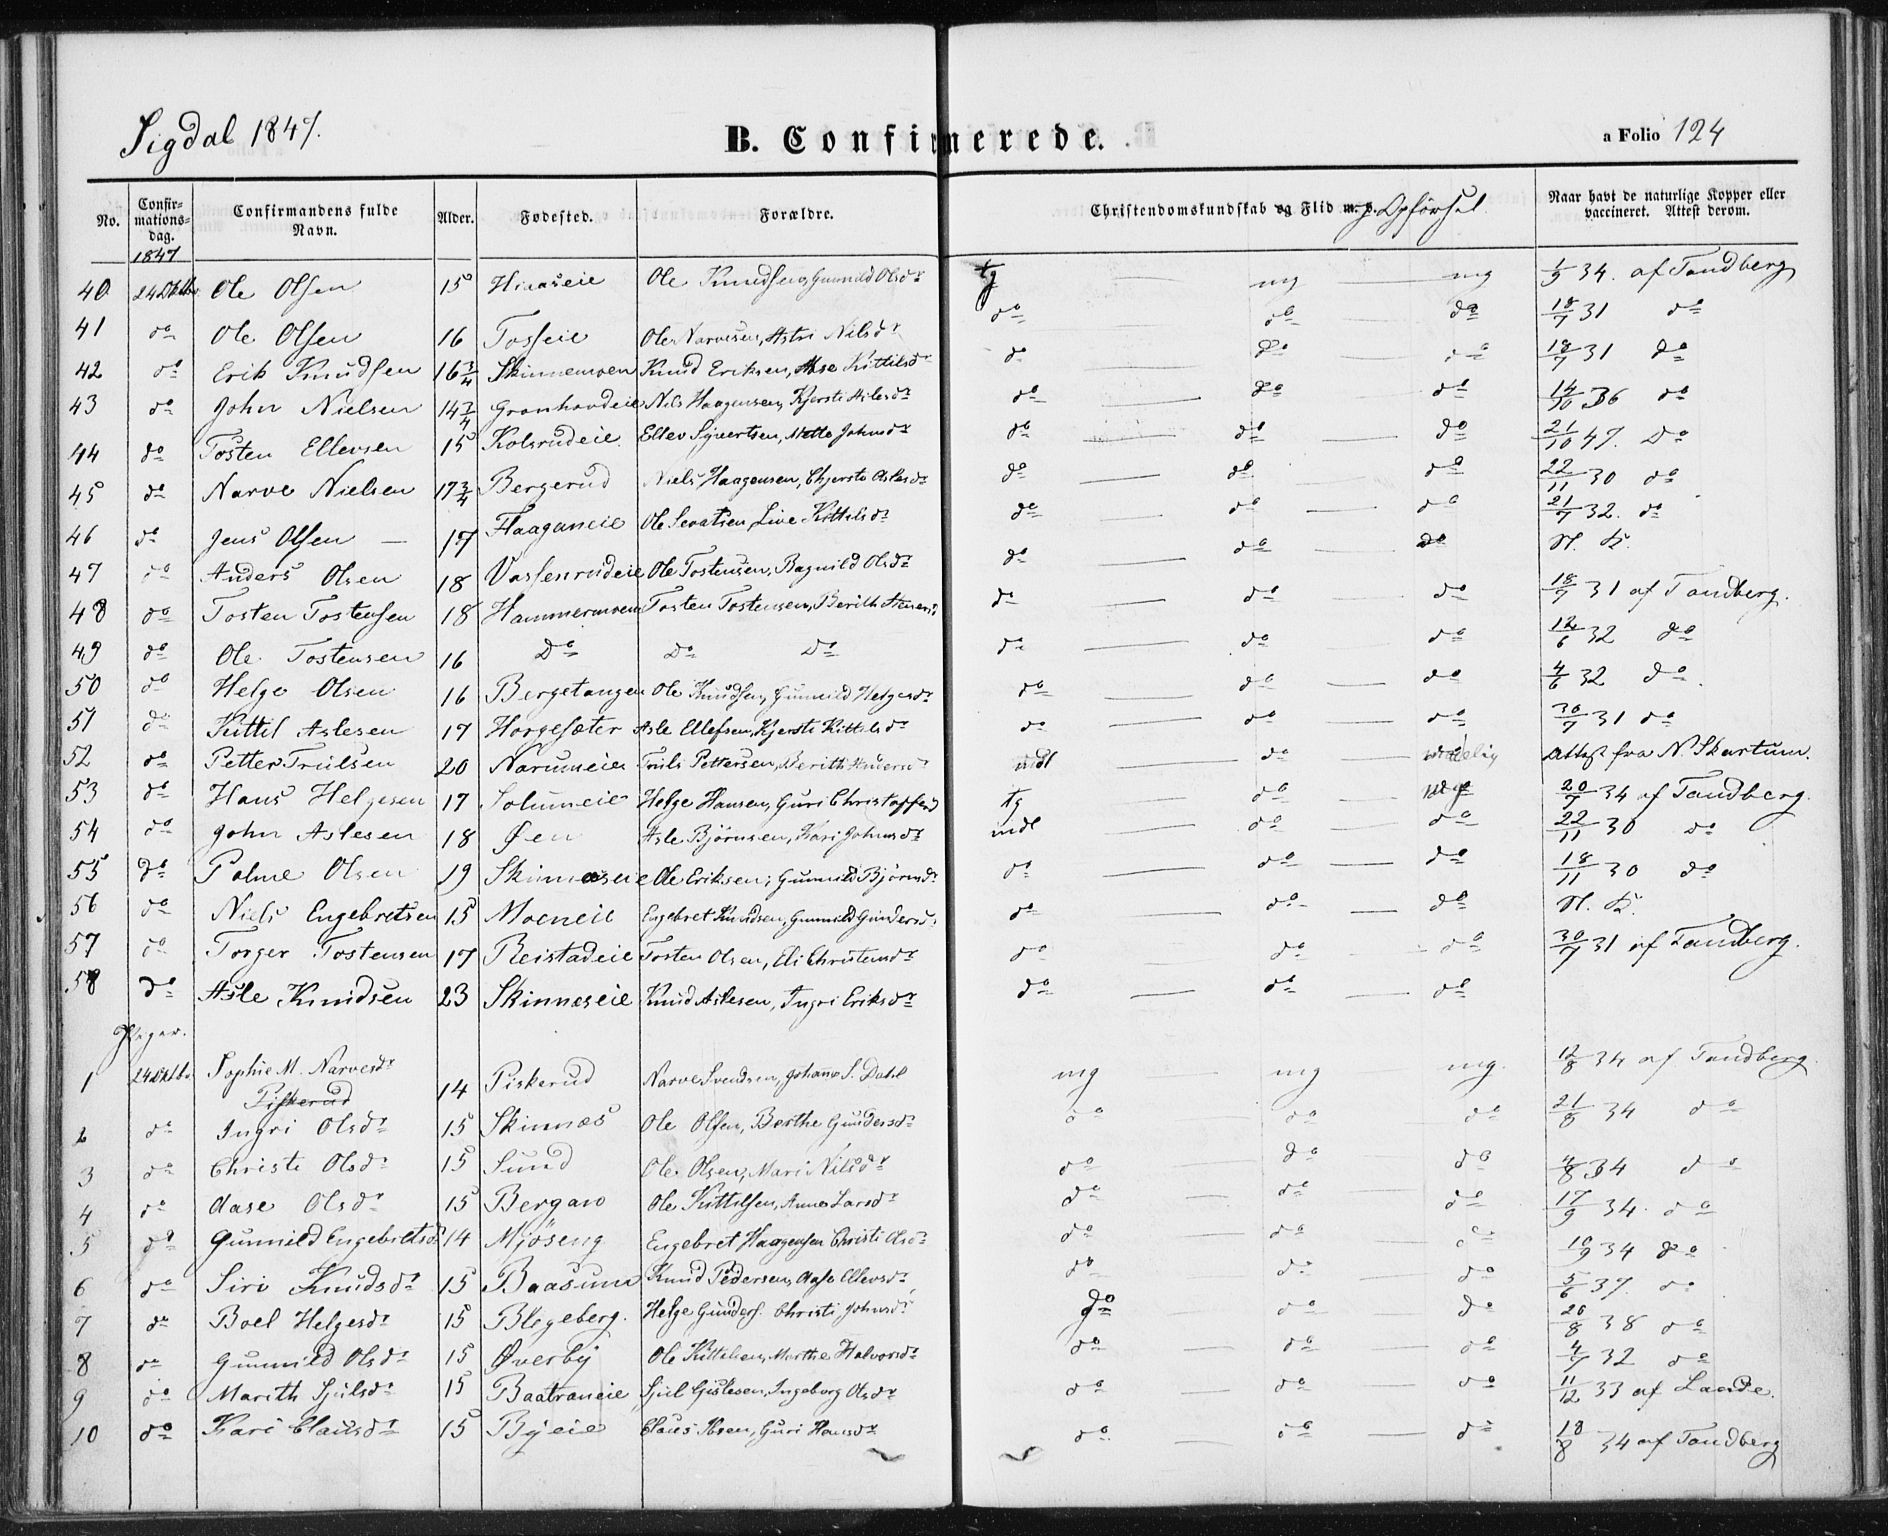 Sigdal 1847.
B. Confirmerede.
a Folio 124
No. Confirmations-dag. Confirmandens fulde Navn. Alder. Fødested. Forældre. Christendomskundskab og Flid Opførsel Naar havt de naturlige Kopper eller vaccineret. Attest derom.
1847
40 24 Oktbr Ole Olsen 15 Ole Knudsen, Gunnild Olsdr tg mg mg 1/9 34. af Tandberg
41 do Ole Olsen 16 Tosseie Ole Narvesen, Astri Nilsdr do do do 18/7 31 do
42 do Erik Knudsen 16 3/4 Skinnemoen Knud Eriksen, Aase Kittilsdr do do do 18/7 31 do
43 do John Nielsen 14 3/4 Grønhovdeie Nils Haagensen, Kjersti do do do 14/10 36 do
44 do Tosten Ellevsen 15 Kolsrudeie Ellev Syvertsen, Mette Johnsdr do do do 21/10 47. Do
45 do Narve Nielsen 17 3/4 Bergerud Niels Haagensen, Chjersti Aslesdr do do do 22/11 30 do
46 do Jens Olsen — 17 Haaganeie Ole Live Kittilsdr do do do 21/7 32. do
47 do Anders Olsen 18 Vassenrudeie Ole Tostensen, Bagnild Olsdr do do do N. K.
48 do Tosten Tostensen 18 Hammermoen Tosten Tostensen, Berith do do do 18/7 31 af Tandberg.
49 do Ole Tostensen 16 Do Do Do do do do 12/6 32 do
50 do Helge Olsen 16 Bergetangen Ole Knudsen, Gunnild Helgesdr do do do 4/6 32 do
51 do Kittil Aslesen 17 Horgesæter Asle Ellefsen, Kjersti Kittilsdr do do do 30/7 31 do
52 do Petter Trulsen 20 Narumeie Truls Pettersen, Berith Andersdr mdl do Attest fra N. Skartum.
53 do Hans Helgesen 17 Solumeie Helge Hansen, Guri Christoffersd tg do mg 20/7 34 af Tandberg.
54 do John Aslesen 18 Øen Asle Bjørnsen, Kari Johnsdr mdl do do 22/11 30 do
55 do Palme Olsen 19 Skinnæseie Ole Eriksen, Gunnild Bjørnsdr do do do 18/11 30 do
56 do Niels Engebretsen 15 Moeneie Engebret Knudsen, Gunnild Gundersd. do do do N. K.
57 do Torger Tostensen 17 Reistadeie Tosten Olsen, Eli Christensdr do do do 30/7 31 af Tandberg.
58 do Asle Knudsen 23 Skinnæseie Knud Aslesen, Ingri Eriksdr do do do
Piger.
1 24 Oktbr Sophie M. Narvesdr 14 Piskerud Narve Svendsen, Johanne S. Dahl mg mg mg. 12/8 34 af Tandberg
Piskerud
2 do Ingri Olsdr 15 Skinnæs Ole Olsen, Berthe Gundersdr do do do 21/8 34 do
3 do Christi Olsdr 15 Sund Ole Olsen, Mari Nilsdr do do do 4/8 34 do
4 do Aase Olsdr 15 Bergan Ole Kittilsen, Anne Larsdr do do do 17/9 34. do
5 do Gunnild Engebretsdr 14 Mjøseng Engebret Haagensen Christi Olsdr do do do 10/9 34 do
6 do Siri Knudsdr 15 Baasum Knud Pedersen, Aase Ellevsdr do do do 5/6 37. do
7 do Boel Helgesdr 15 Blegeberg. Helge Gunders. Christi Johnsdr do do do 20/8 38 do
8 do Gunnild Olsdr 15 Øverby Ole Kittilsen, Marthe Halvorsdr do do do 4/7 32 do
9 do Marith Sjulsdr 15 Baatraneie Sjul Gislesen, Ingeborg Olsdr do do do 11/12 33 af Laerde.
10 do Kari Clausdr 15 Byeie Claus Ibsen, Guri Hansdr do do do 18/8 34 af Tandberg